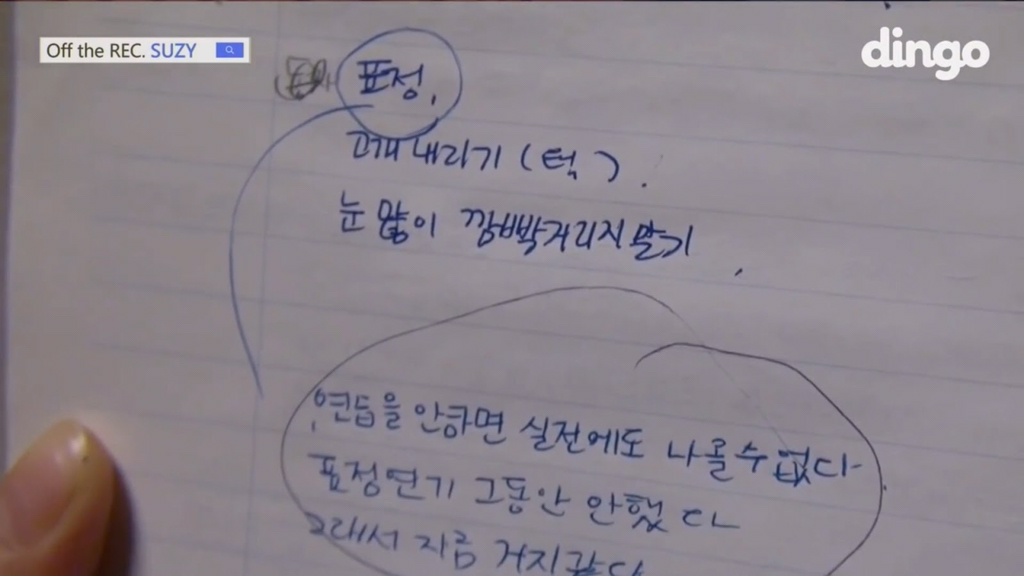 Off the REC. SUZY
dingo
표정,
고개 내리기 (턱).
눈 많이 깜빡거리지 말기,
연습을 안하면 실전에도 나올수 없다
표정연기 그동안 안했다
그래서 지금 거지같다